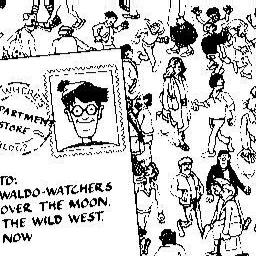 WHERE'S
PARTMENT
STORE
TO:
WALDO-WATCHERS
OVER THE MOON,
THE WILD WEST,
NOW